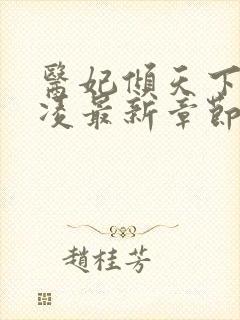 醫妃傾天下
凌最新章節
趙桂芳